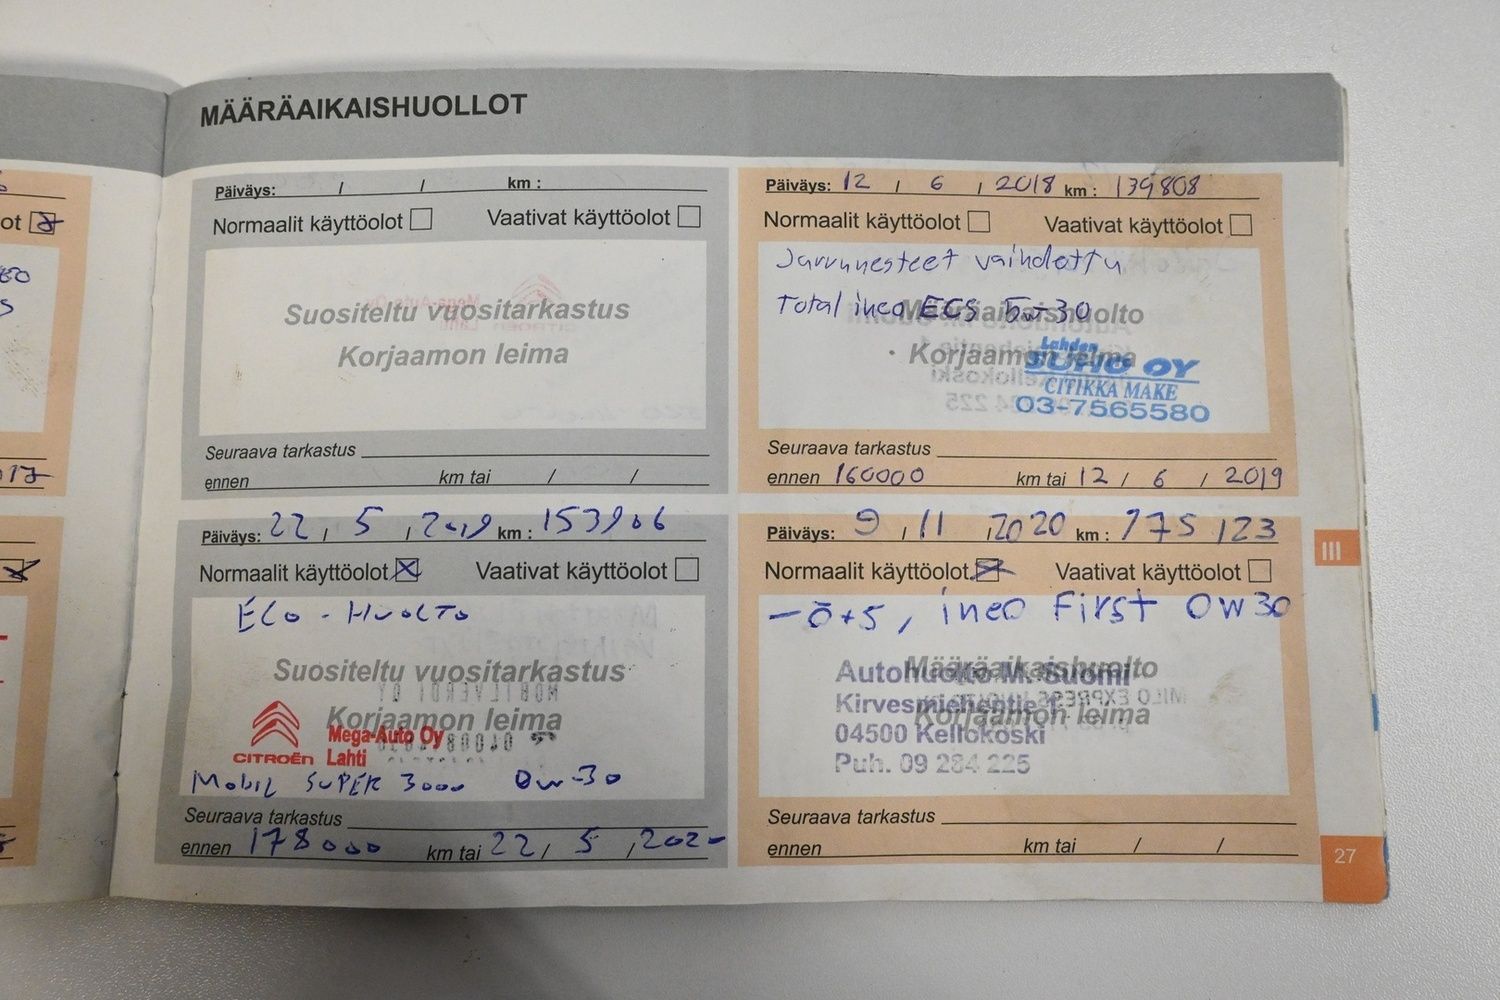 MÄÄRÄAIKAISHUOLLOT
Päiväys: / / km :
Normaalit käyttöolot Vaativat käyttöolot
Suositeltu vuositarkastus
Korjaamon leima
Seuraava tarkastus
ennen km tai / /
Päiväys: 12 / 6 / 2018 km : 139808
Normaalit käyttöolot Vaativat käyttöolot
Jarrunesteet vaihdettu
Total ineo ECS 5w-30
Määräaikaishuolto
Korjaamon leima
Lahden
SUHO OY
CITIKKA MAKE
03-7565580
Seuraava tarkastus
ennen 160000 km tai 12 / 6 / 2019
Päiväys: 22 / 5 / 2019 km : 153906
Normaalit käyttöolot Vaativat käyttöolot
ECO - HUOLTO
Suositeltu vuositarkastus
Korjaamon leima
CITROËN
Mega-Auto Oy
Lahti
Mobil SUPER 3000 0w-30
Seuraava tarkastus
ennen 178000 km tai 22 / 5 / 2020
Päiväys: 9 / 11 / 2020 km : 175 123
Normaalit käyttöolot Vaativat käyttöolot
- ö+s, ineo First 0w30
Määräaikaishuolto
Korjaamon leima
Autohuolto M. Suomi
Kirvesmiehentie 1
04500 Kellokoski
Puh. 09 284 225
Seuraava tarkastus
ennen km tai / /
III
27